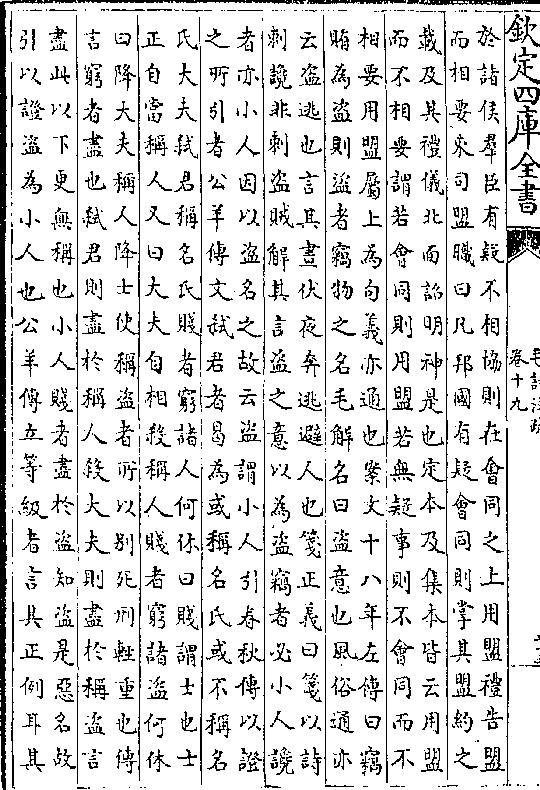 欽定四庫全書
毛詩注疏
卷十九
於諸侯羣臣有疑不相協則在會同之上用盟禮告盟
而相要束司盟職曰凡邦國有疑會同則掌其盟約之
載及其禮儀北面詔明神是也定本及集本皆云用盟
而不相要謂若會同則用盟若無疑事則不會同而不
相要用盟屬上為句義亦通也案文十八年左傳曰竊
賄為盗則盗者竊物之名毛解名曰盗意也風俗通亦
云盗逃也言其晝伏夜奔逃避人也箋正義曰箋以詩
刺讒非刺盗賊解其言盗之意以為盗竊者必小人讒
者亦小人因以盗名之故云盗謂小人引春秋傳以證
之所引者公羊傳文弑君者曷為或稱名氏或不稱名
氏大夫弑君稱名氏賤者窮諸人何休曰賤謂士也士
正自當稱人又曰大夫自相殺稱人賤者窮諸盗何休
曰降大夫稱人降士使稱盗者所以别死刑輕重也傳
言窮者盡也弑君則盡於稱人殺大夫則盡於稱盗言
盡此以下更無稱也小人賤者盡於盗知盗是惡名故
引以證盗為小人也公羊傳立等級者言其正例耳其